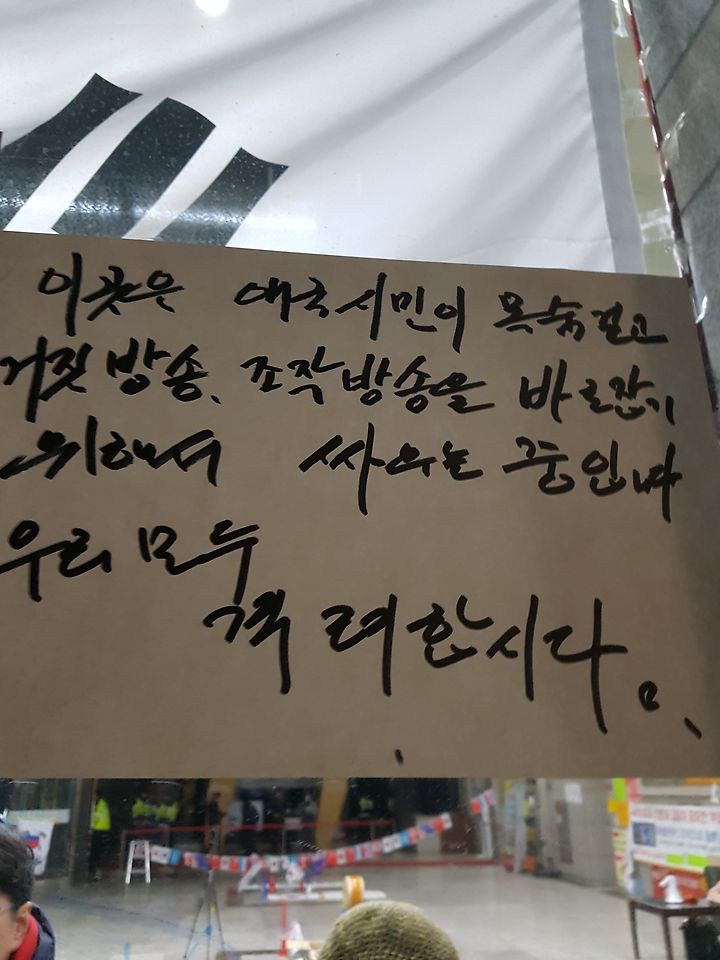 이곳은 애국시민이 목숨걸고
거짓방송, 조작방송을 바로잡기
위해서 싸우는 중입니다
우리 모두
격려합시다.